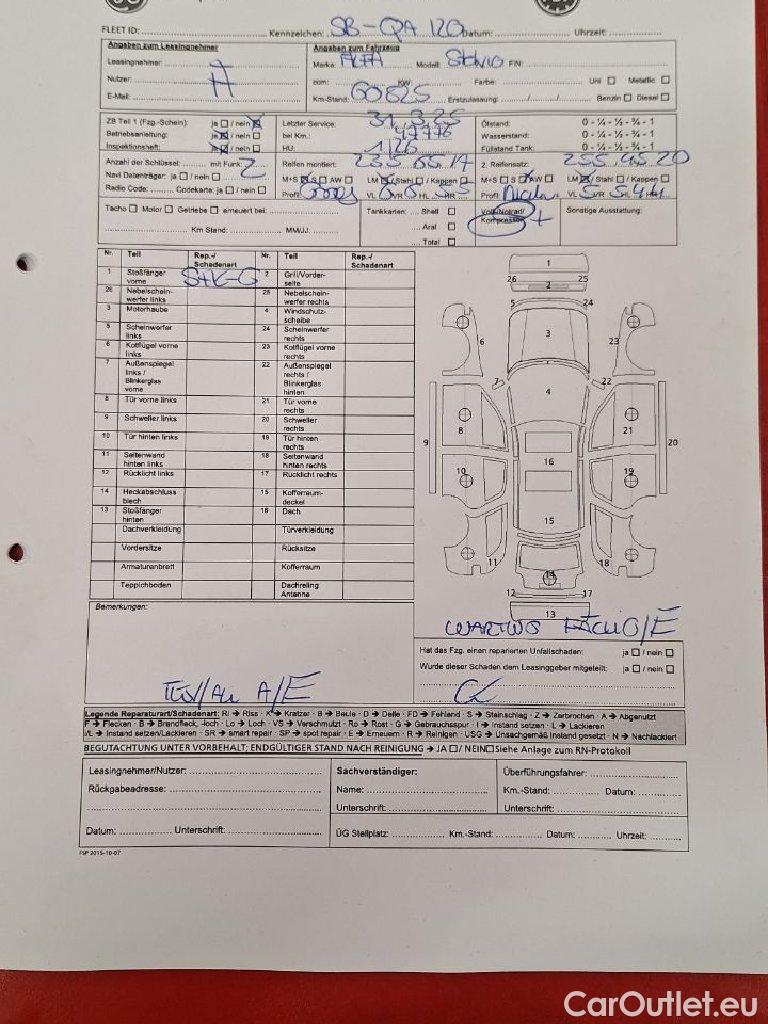 FLEET ID: Kennzeichen: SB-QA 120 Datum: Uhrzeit:
Angaben zum Leasingnehmer Angaben zum Fahrzeug
Leasingnehmer: Marke: Modell: Stelvio FIN:
Nutzer: ccm: KW: Farbe: Uni Metallic
E-Mail: Km-Stand: 60825 Erstzulassung: Benzin Diesel
ZB Teil 1 (Fzg.-Schein): ja / nein Letzter Service: 31.3.25 Ölstand: 0 - ¼ - ½ - ¾ - 1
Betriebsanleitung: ja / nein bei Km.: 47776 Wasserstand: 0 - ¼ - ½ - ¾ - 1
Inspektionsheft: ja / nein HU: 1/26 Füllstand Tank: 0 - ¼ - ½ - ¾ - 1
Anzahl der Schlüssel: mit Funk: 2 Reifen montiert: 235.65.17 2. Reifensatz: 255.45.20
Navi Datenträger: ja / nein M+S S AW LM / Stahl / Kappen M+S S AW LM / Stahl / Kappen
Radio Code: Codekarte: ja / nein Profil: VL VR HL HR Profil: VL 5 VR 5 HL 4 HR 4
Tacho Motor Getriebe erneuert bei: Tankkarten: Shell Voll/Notrad/ Kompressor + Sonstige Ausstattung:
Aral
Km Stand: MM/JJ: Total
Nr. Teil Rep.-/ Schadenart Nr. Teil Rep.-/ Schadenart
1 Stoßfänger vorne S+K-G 2 Grill/Vorderseite
26 Nebelscheinwerfer links 25 Nebelscheinwerfer rechts
3 Motorhaube 4 Windschutzscheibe
5 Scheinwerfer links 24 Scheinwerfer rechts
6 Kotflügel vorne links 23 Kotflügel vorne rechts
7 Außenspiegel links / Blinkerglas vorne 22 Außenspiegel rechts / Blinkerglas hinten
8 Tür vorne links 21 Tür vorne rechts
9 Schweller links 20 Schweller rechts
10 Tür hinten links 19 Tür hinten rechts
11 Seitenwand hinten links 18 Seitenwand hinten rechts
12 Rücklicht links 17 Rücklicht rechts
14 Heckabschluss blech 15 Kofferraumdeckel
13 Stoßfänger hinten 16 Dach
Dachverkleidung Türverkleidung
Vordersitze Rücksitze
Armaturenbrett Kofferraum
Teppichboden Dachreling Antenne
1
26 25
2
5 24
6 3 23
7 22
4
8 21
9 20
10 16 19
15
11 14 18
12 17
13
Bemerkungen:
Hat das Fzg. einen reparierten Unfallschaden: ja / nein
Wurde dieser Schaden dem Leasinggeber mitgeteilt: ja / nein
Legende Reparaturart/Schadenart: Ri → Riss · K → Kratzer · B → Beule · D → Delle · FD → Fehlend · S → Steinschlag · Z → Zerbrochen · A → Abgenutzt
F → Flecken · B → Brandfleck, -loch · Lo → Loch · VS → Verschmutzt · Ro → Rost · G → Gebrauchsspur · I → Instand setzen · L → Lackieren
I/L → Instand setzen/Lackieren · SR → smart repair · SP → spot repair · E → Erneuern · R → Reinigen · USG → Unsachgemäß instand gesetzt · N → Nachlackiert
BEGUTACHTUNG UNTER VORBEHALT; ENDGÜLTIGER STAND NACH REINIGUNG → JA / NEIN Siehe Anlage zum RN-Protokoll
Leasingnehmer/Nutzer: Sachverständiger: Überführungsfahrer:
Rückgabeadresse: Name: Km.-Stand: Datum:
Unterschrift: Unterschrift:
Datum: Unterschrift: ÜG Stellplatz: Km.-Stand: Datum: Uhrzeit:
FSP 2015-10-07
CarOutlet.eu